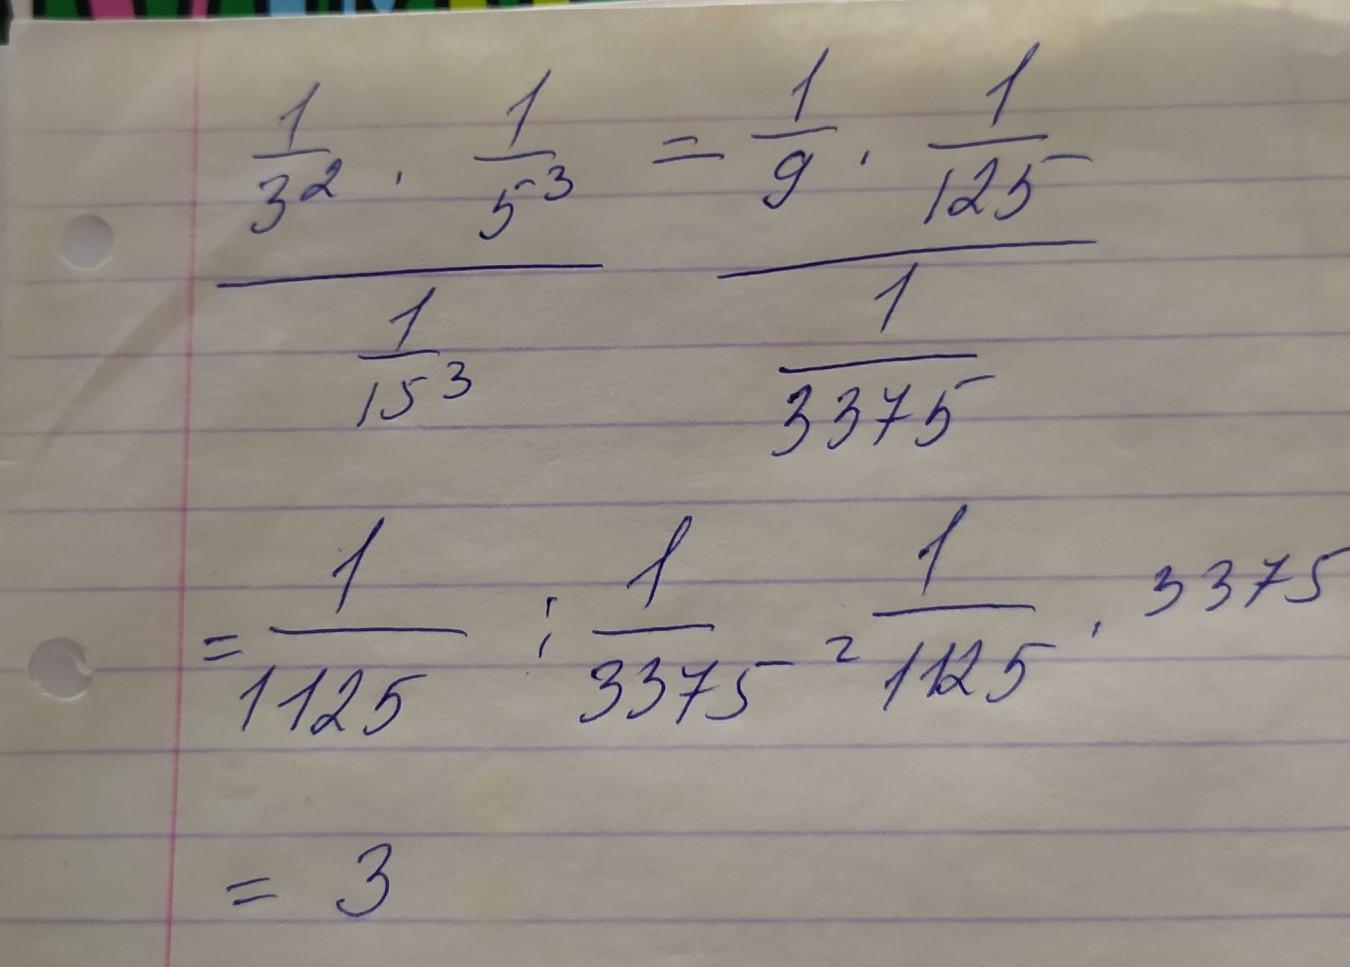 1/3² · 1/5³ = 1/9 · 1/125
1/15³ 1/3375
= 1/1125 : 1/3375 = 1/1125 · 3375
= 3